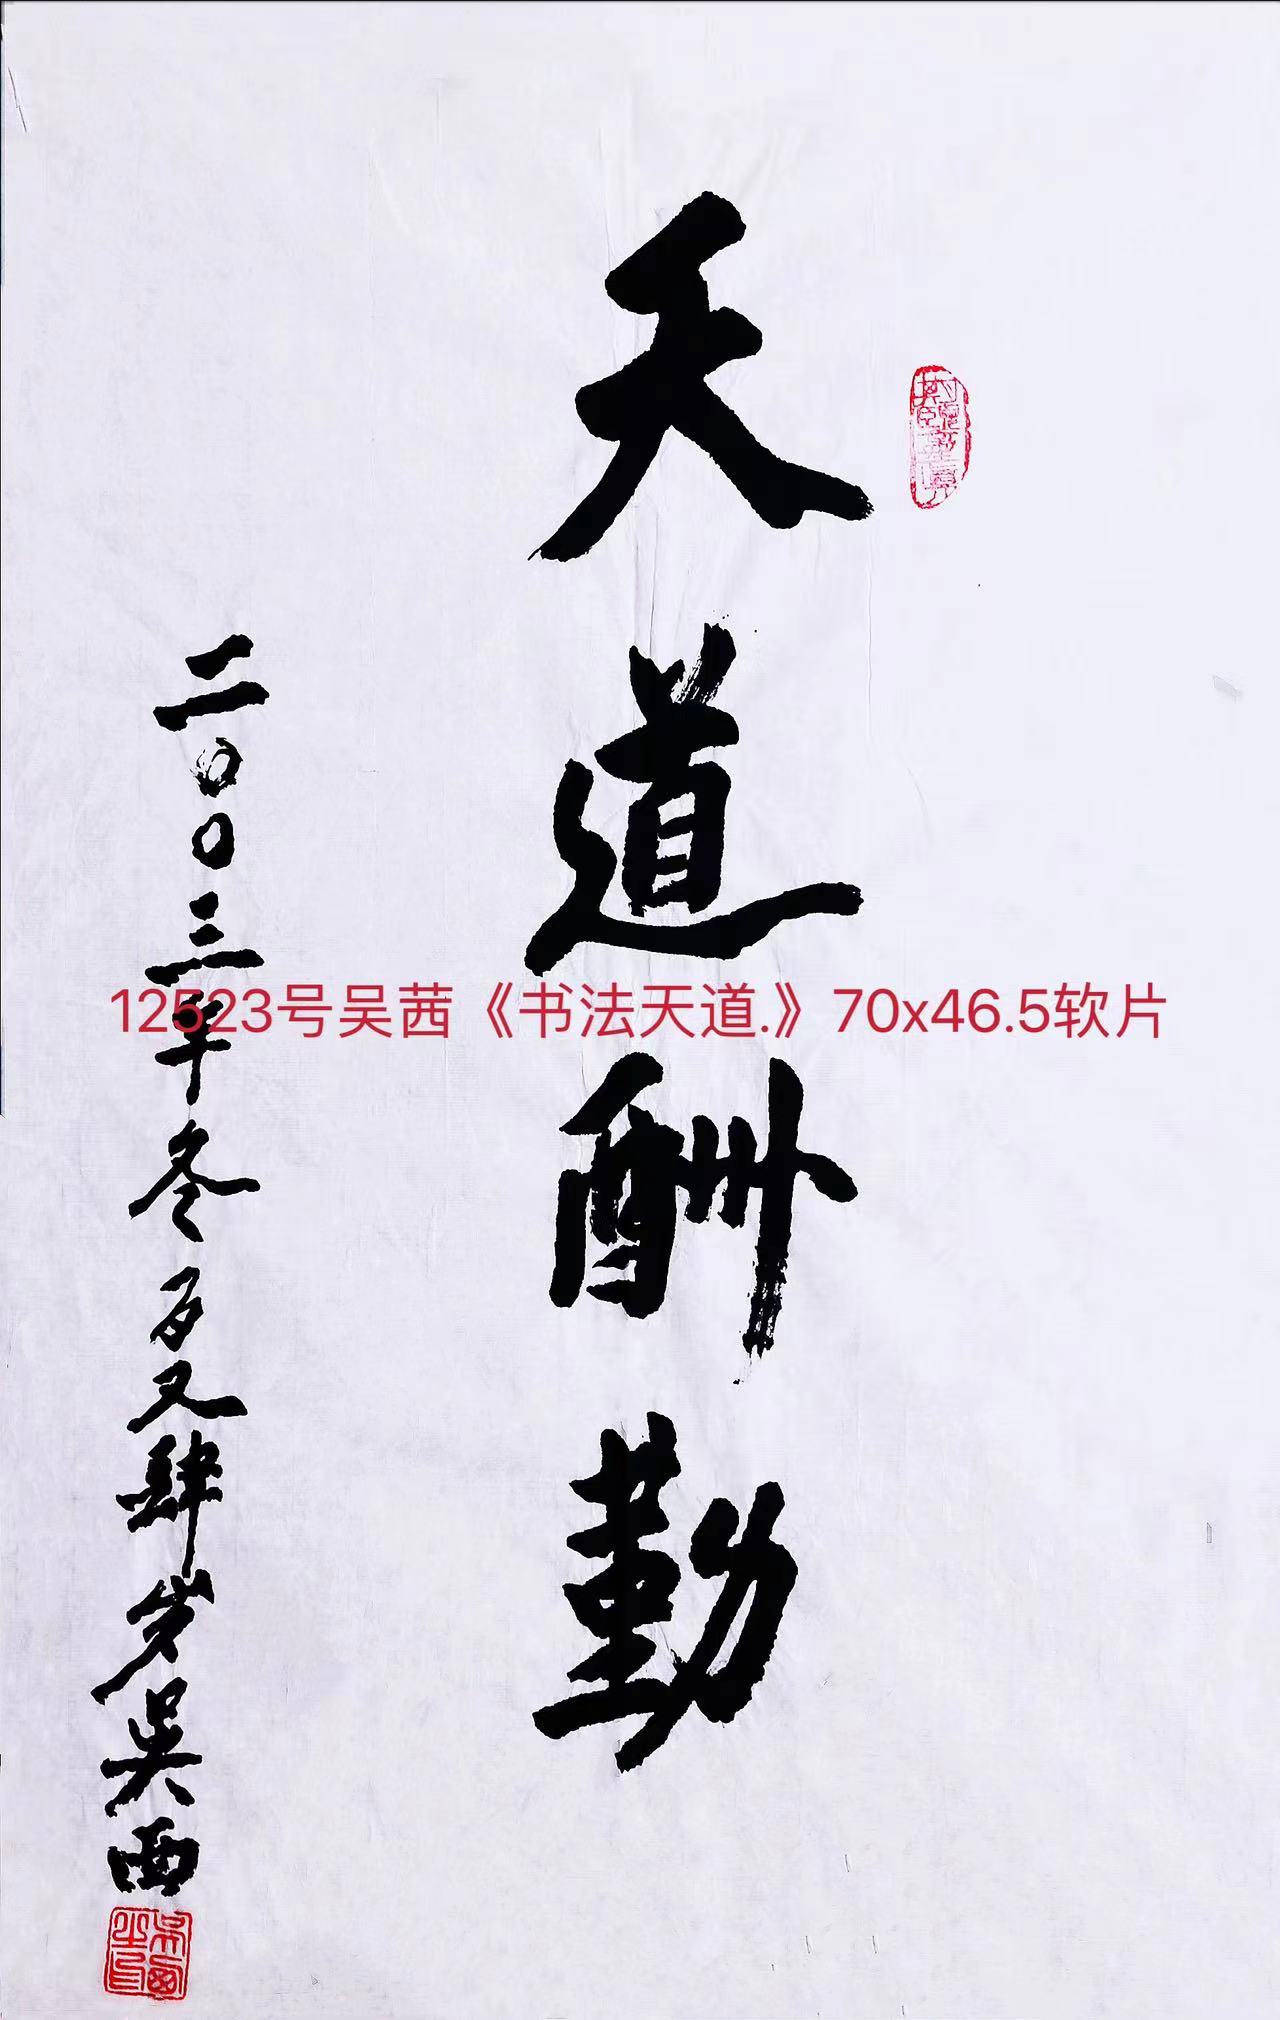 天道酬勤
二〇〇三年冬百又肆岁吴西
吴西之印
12523号吴茜《书法天道.》70x46.5软片